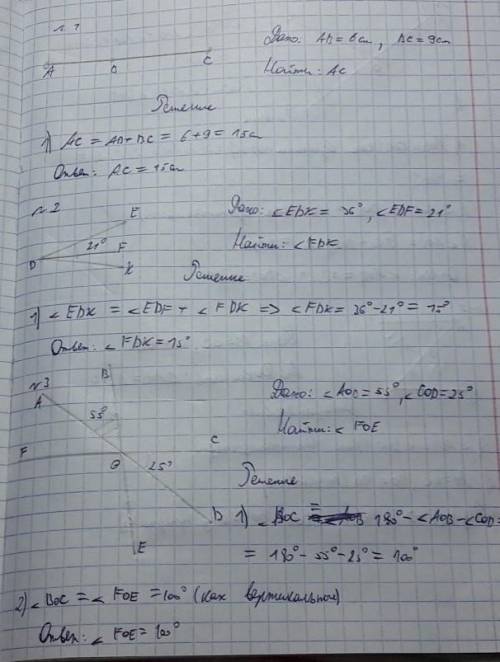 № 1
Дано: AB = 6см, BC = 9см
A B C
Найти: AC
Решение
1) AC = AB + BC = 6 + 9 = 15см
Ответ: AC = 15см
№ 2
Дано: ∠EDK = 36°, ∠EDF = 21°
E
21° F
D
K
Найти: ∠FDK
Решение
1) ∠EDK = ∠EDF + ∠FDK => ∠FDK = 36° - 21° = 15°
Ответ: ∠FDK = 15°
№3
B
A
Дано: ∠AOB = 55°, ∠COD = 25°
55°
C
Найти: ∠FOE
F
O 25°
Решение
D
1) ∠BOC = 180° - ∠AOB - ∠COD =
E
= 180° - 55° - 25° = 100°
2) ∠BOC = ∠FOE = 100° (как вертикальные)
Ответ: ∠FOE = 100°